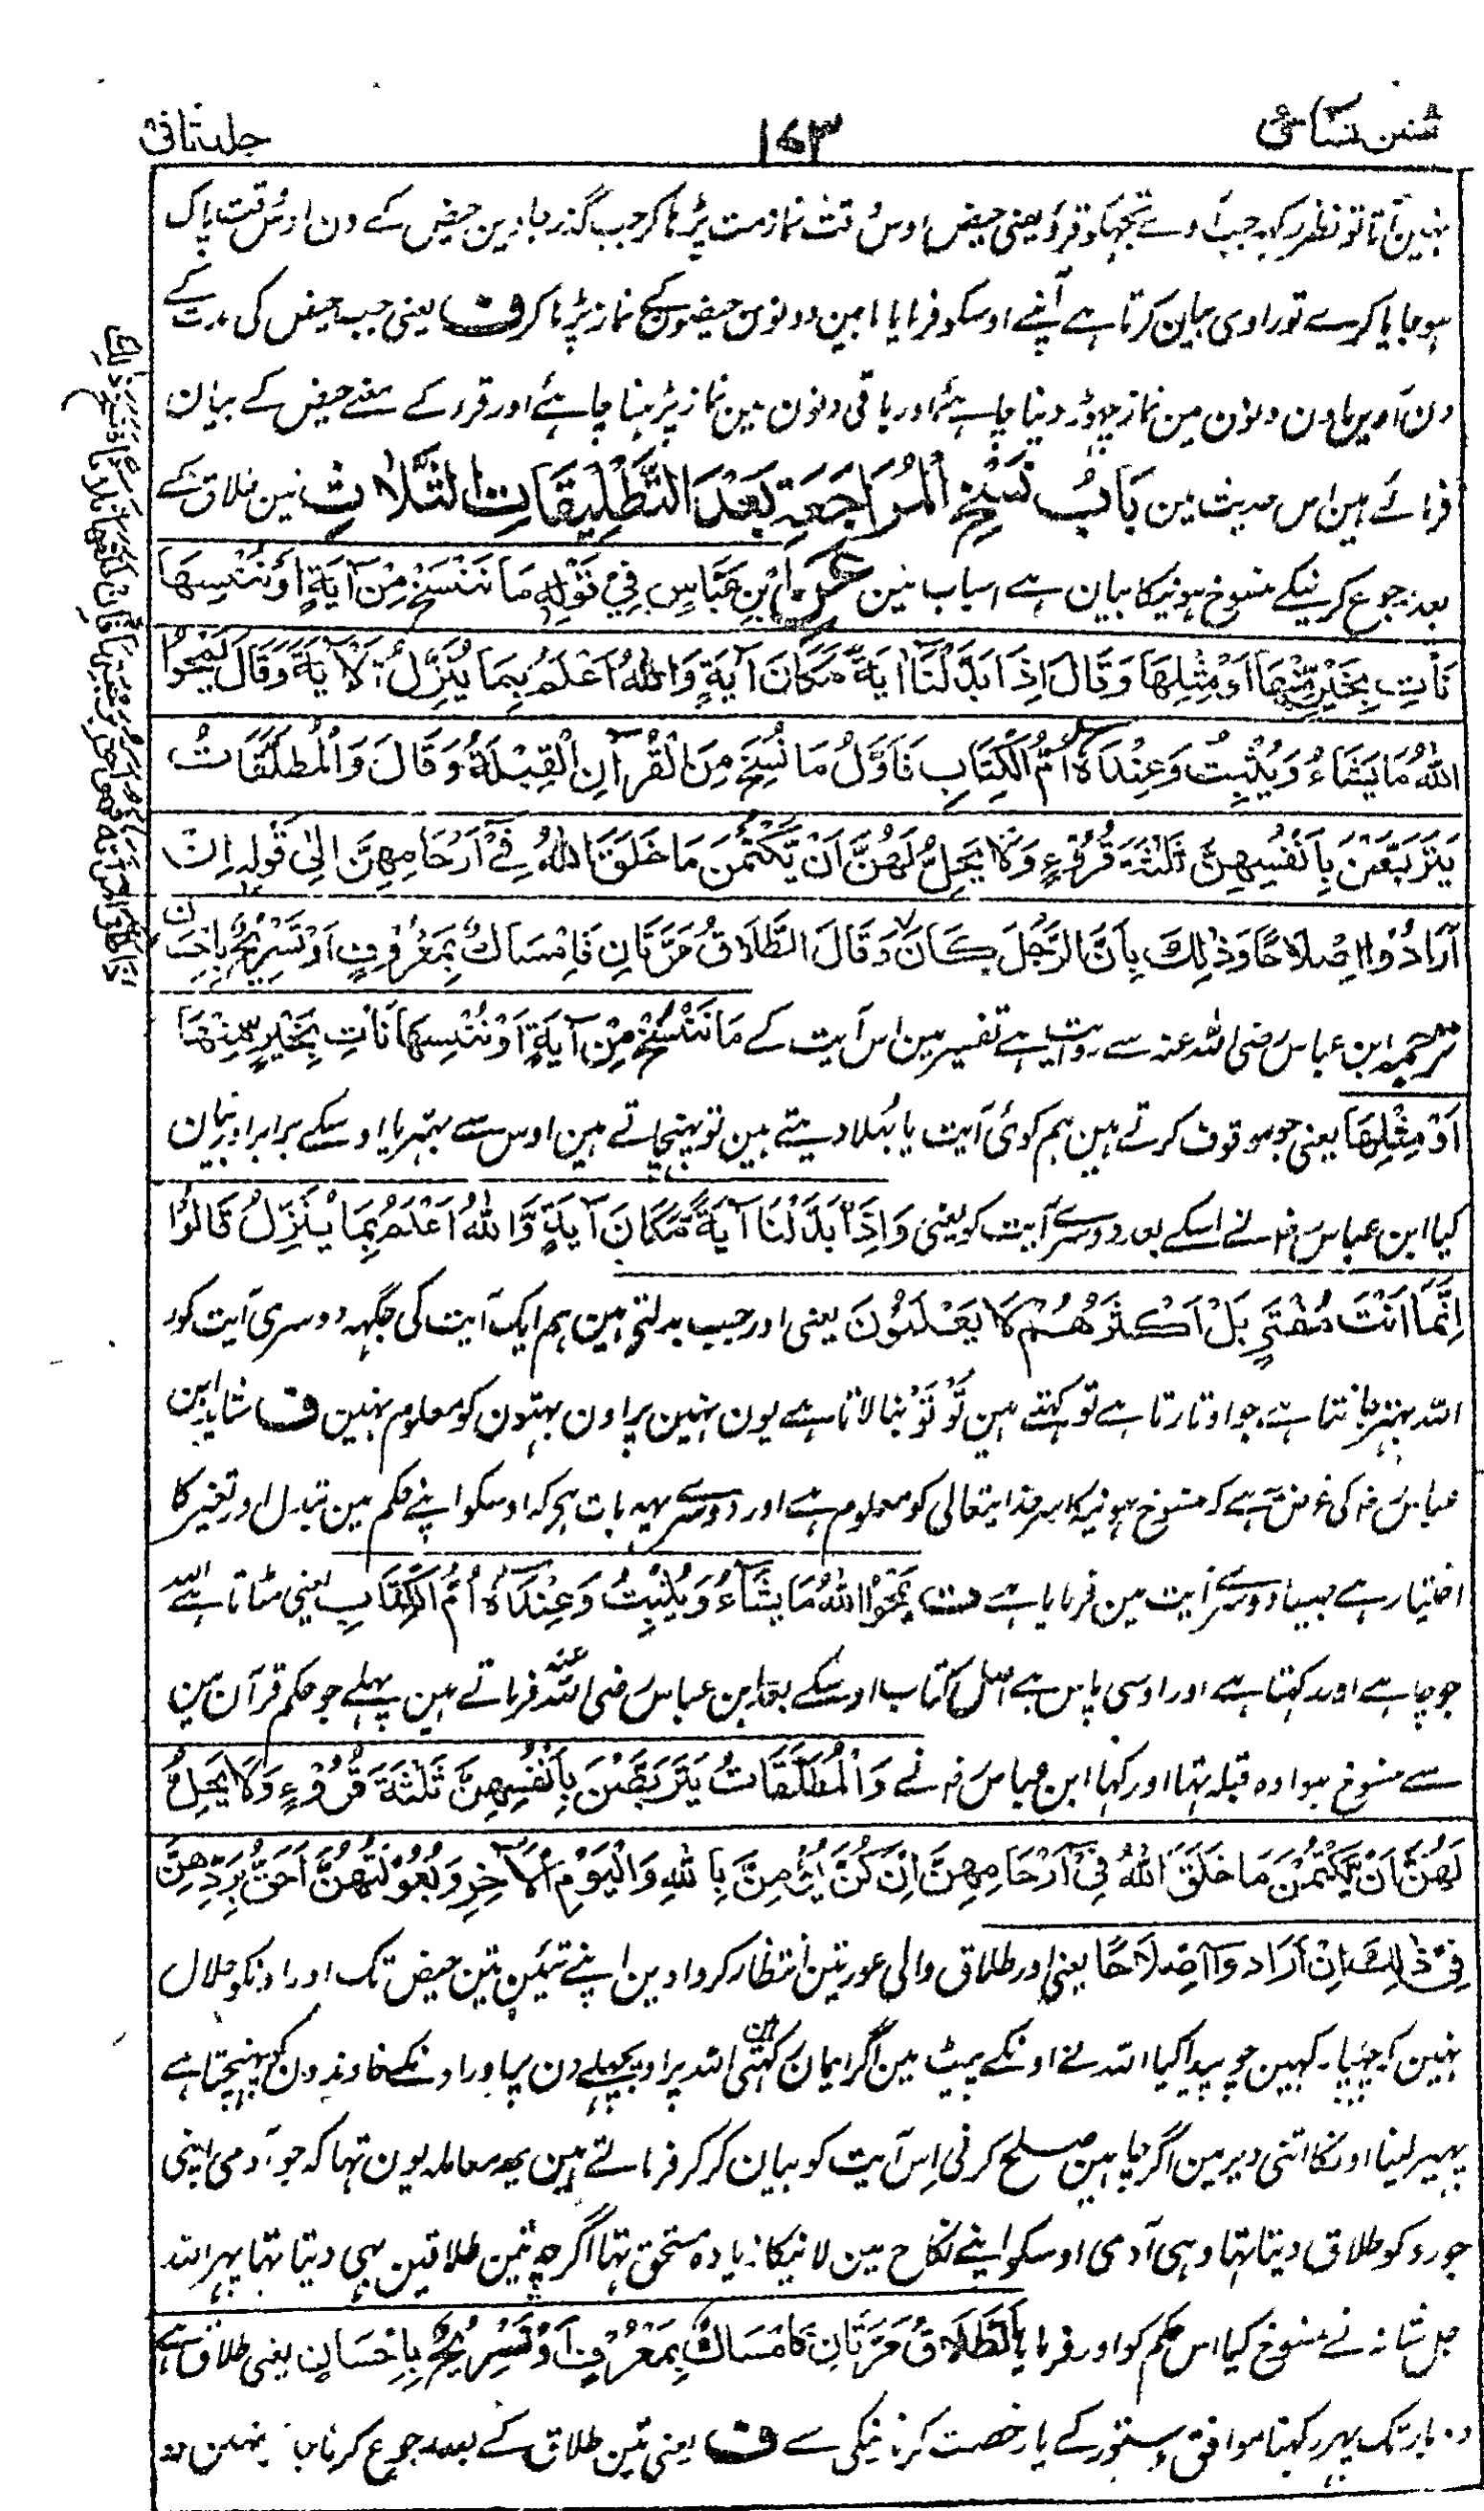 سنن نسائی
۱۷۳
جلد ثانی
نہین آتا تو نظر رکہہ جب آوے تجہکو قرؤ یعنی حیض اوس وقت نماز مت پڑہا کر جب گذر جاوین حیض کے دن اوس وقت پاک
ہو جایا کرے تو راوی بیان کرتا ہے آپنے اوسکو فرمایا مابین دونون حیضونکے نماز پڑہا کر ف یعنی جب حیض کی مدت کے
دن آوین اون دلون مین نماز چہوڑ دینا چاہئے اور باقی دنون مین نماز پڑہنا چاہئے اور قرء کے معنے حیض کے بیان
فرمائے ہین اس حدیث مین بَابُ نَسْخِ الْمُرَاجَعَةِ بَعْدَ التَّطْلِیْقَاتِ الثَّلَاثِ تین طلاق کے
بعد رجوع کرنیکے منسوخ ہونیکا بیان ہے اس باب مین عَنِ ابْنِ عَبَّاسٍ فِیْ قَوْلِهٖ مَا نَنْسَخْ مِنْ آیَةٍ اَوْ نُنْسِهَا
نَأْتِ بِخَیْرٍ مِّنْهَا اَوْ مِثْلِهَا وَقَالَ اِذَا بَدَّلْنَا اٰیَةً مَّكَانَ آیَةٍ وَاللّٰهُ اَعْلَمُ بِمَا یُنَزِّلُ الْاٰیَةَ وَقَالَ یَمْحُوا
اللّٰهُ مَا یَشَاءُ وَیُثْبِتُ وَعِنْدَهٗ اُمُّ الْكِتَابِ فَاَوَّلُ مَا نُسِخَ مِنَ الْقُرْاٰنِ الْقِبْلَةُ وَقَالَ وَالْمُطَلَّقَاتُ
یَتَرَبَّصْنَ بِاَنْفُسِهِنَّ ثَلٰثَةَ قُرُوْءٍ وَلَا یَحِلُّ لَهُنَّ اَنْ یَّكْتُمْنَ مَا خَلَقَ اللّٰهُ فِیْ اَرْحَامِهِنَّ اِلٰی قَوْلِهٖ اِنْ
اَرَادُوْا اِصْلَاحًا وَذٰلِكَ بِاَنَّ الرَّجُلَ كَانَ وَقَالَ الطَّلَاقُ مَرَّتَانِ فَاِمْسَاكٌ بِمَعْرُوْفٍ اَوْ تَسْرِیْحٌ بِاِحْسَانٍ
ترجمہ ابن عباس رضی اللہ عنہ سے روایت ہے تفسیر مین اس آیت کے مَا نَنْسَخْ مِنْ آیَةٍ اَوْ نُنْسِهَا نَأْتِ بِخَیْرٍ مِّنْهَا
اَوْ مِثْلِهَا یعنی جو موقوف کرتے ہین ہم کوئی آیت یا بہلا دیتے ہین تو پہنچاتے ہین اوس سے بہتر یا اوسکے برابر اور بیان
کیا ابن عباس رضہ نے اسکے بعد دوسرے آیت کو یعنی وَاِذَا بَدَّلْنَا آیَةً مَّكَانَ آیَةٍ وَّاللّٰهُ اَعْلَمُ بِمَا یُنَزِّلُ قَالُوْا
اِنَّمَا اَنْتَ مُفْتَرٍ بَلْ اَكْثَرُهُمْ لَا یَعْلَمُوْنَ یعنی اور جب بدلتے ہین ہم ایک آیت کی جگہہ دوسری آیت کو اور
اللہ بہتر جانتا ہے جو اوتارتا ہے تو کہتے ہین تو تو بنا لاتا ہے یون نہین پر اون بہتون کو معلوم نہین ف شاید ابن
عباس رضہ کی غرض ہے کہ منسوخ ہونیکا سر خدایتعالی کو معلوم ہے اور دوسرے یہہ بات ہیکہ اوسکو اپنے حکم مین تبدل اور تغیر کا
اختیار ہے جیسا دوسرے آیت مین فرمایا ہے یَمْحُوا اللّٰهُ مَا یَشَآءُ وَیُثْبِتُ وَعِنْدَهٗ اُمُّ الْكِتَابِ یعنی مٹاتا ہے اللہ
جو چاہے اور رکہتا ہے اور اوسی پاس ہے اصل کتاب اوسکے بعد ابن عباس رضی اللہ عنہ فرماتے ہین پہلے جو حکم قرآن مین
سے منسوخ ہوا وہ قبلہ تہا اور کہا ابن عباس رضہ نے وَالْمُطَلَّقَاتُ یَتَرَبَّصْنَ بِاَنْفُسِهِنَّ ثَلٰثَةَ قُرُوْءٍ وَلَا یَحِلُّ
لَهُنَّ اَنْ یَّكْتُمْنَ مَا خَلَقَ اللّٰهُ فِیْ اَرْحَامِهِنَّ اِنْ كُنَّ یُؤْمِنَّ بِاللّٰهِ وَالْیَوْمِ الْاٰخِرِ وَبُعُوْلَتُهُنَّ اَحَقُّ بِرَدِّهِنَّ
فِیْ ذٰلِكَ اِنْ اَرَادُوْا اِصْلَاحًا یعنی اور طلاق والی عورتین انتظار کروادین اپنے تئین تین حیض تک اور اونکو حلال
نہین کہ چہپا رکہین جو پیدا کیا اللہ نے اونکے پیٹ مین اگر ایمان رکہتی ہین اللہ پر اور پچہلے دن پر اور اونکے خاوندون کو پہنچتا ہے
پہیر لینا اونکا اتنی دیر مین اگر چاہین صلح کرنی اس آیت کو بیان کر کر فرماتے ہین یہہ معاملہ یون تہا کہ جو آدمی اپنی
جورو کو طلاق دیتا تہا وہی آدمی اوسکو اپنے نکاح مین لانیکا زیادہ مستحق تہا اگرچہ تین طلاقین بہی دیتا تہا پہر اللہ
جل شانہ نے منسوخ کیا اس حکم کو اور فرمایا اَلطَّلَاقُ مَرَّتَانِ فَاِمْسَاكٌ بِمَعْرُوْفٍ اَوْ تَسْرِیْحٌ بِاِحْسَانٍ یعنی طلاق ہے
دو بار تک پہر رکہنا موافق دستور کے یا رخصت کرنا نیکی سے ف یعنی تین طلاق کے بعد رجوع کرنا نہین